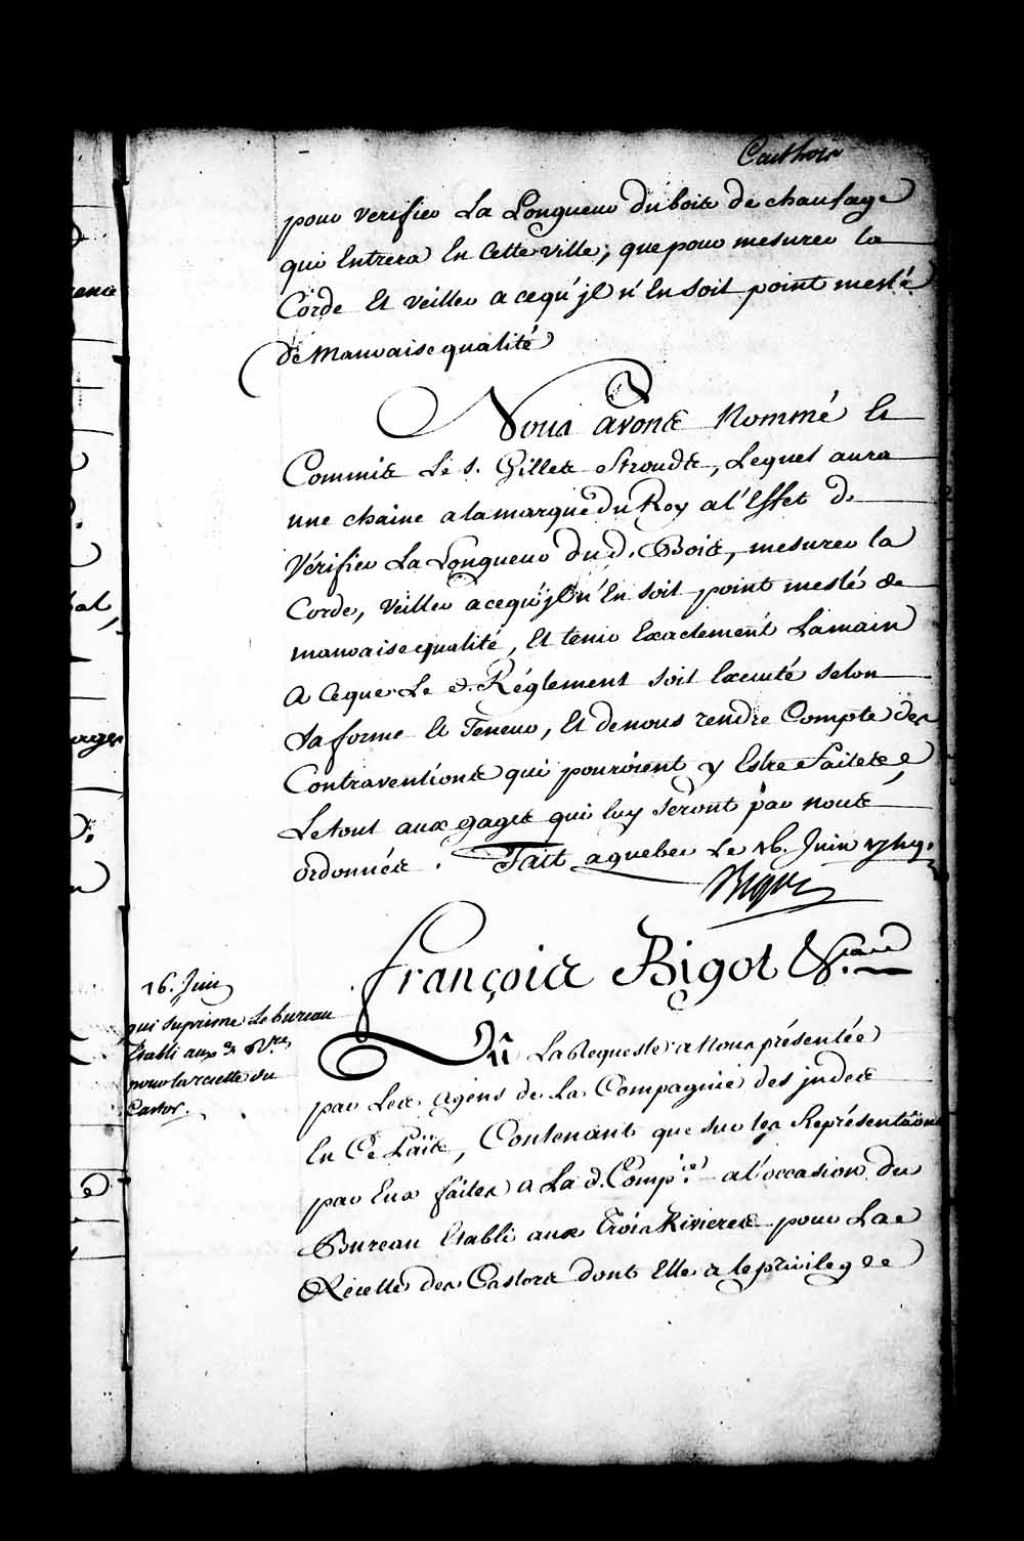 pour verifier La Longueur du bois de chaufage
qui Entrera En Cette ville, que pour mesurer la
Corde Et veiller a cequ'jl n'En soit point meslé
de Mauvaise qualité
Nous avons Nommé Et
Commis Le S. Gilles Strouds, Lequel aura
une chaine a la marque du Roy a l'Effet de
Vérifier La Longueur du d. Bois, mesurer la
Corde, Veiller a cequ'jl n'En soit point meslé de
mauvaise qualité, Et tenir Exactement La main
a Ceque Le d. Réglement soit Executé selon
Sa forme Et Teneur, Et de nous rendre Compte des
Contraventions qui pouroient y Estre faites
Le tout aux gages qui luy seront par nous
ordonnés. Fait a quebec Le 16. Juin 1749.
Bigot
françois Bigot &.
16. Juin
qui suprime Le bureau
Etabli aux 3 Riv.res
pour la recette du
Castor.
Vû La Requeste a Nous présentée
par Les Agens de La Compagnie des jndes
En Ce Païs, Contenant que sur les Représentations
par Eux faites a La d. Comp.ie a l'occasion du
Bureau Etabli aux Trois Rivieres pour La
Recette des Castors dont Elle a le privilege